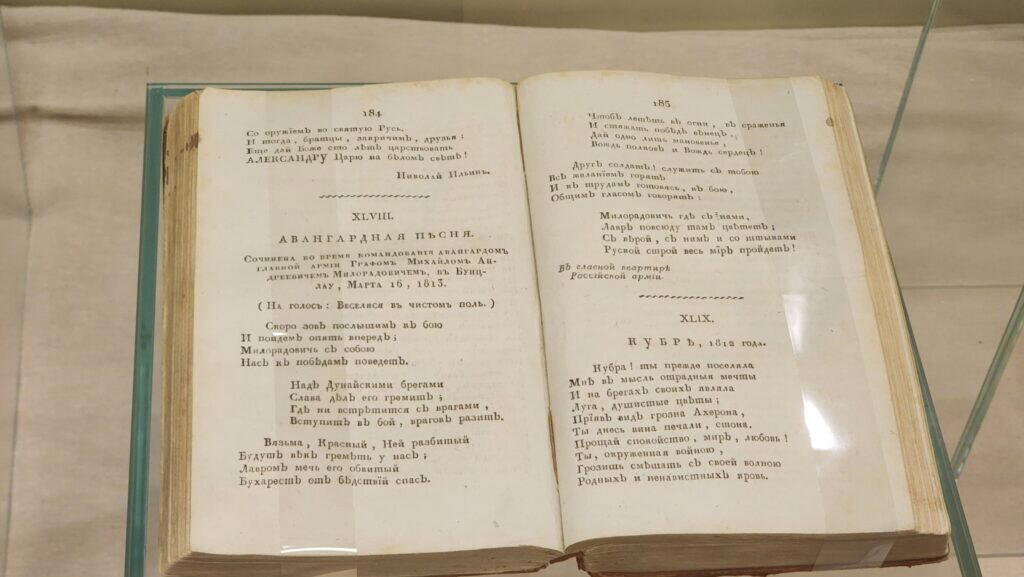 184
Со оружіемъ во святую Русь.
И тогда, братцы, закричимъ, друзья:
Еще дай Боже сто лѣтъ царствовать
АЛЕКСАНДРУ Царю на бѣломъ свѣтѣ!
Николай Ильинъ.
XLVIII.
АВАНГАРДНАЯ ПѢСНЯ.
Сочинена во время командованія авангардомъ
главной арміи Графомъ Михайломъ Ан-
дреевичемъ Милорадовичемъ, въ Бунц-
лау, Марта 16, 1813.
(На голосъ: Веселяся въ чистомъ полѣ.)
Скоро зовъ послышимъ къ бою
И пойдемъ опять впередъ;
Милорадовичь съ собою
Насъ къ побѣдамъ поведетъ.
Надъ Дунайскими брегами
Слава дѣлъ его гремитъ;
Гдѣ ни встрѣтится съ врагами,
Вступитъ въ бой, враговъ разитъ.
Вязьма, Красный, Ней разбитый
Будутъ вѣкъ гремѣть у насъ;
Лавромъ мечь его обвитый
Бухарестъ отъ бѣдствій спасъ.
185
Чтобъ летѣть въ огни, въ сраженья
И стяжать побѣдъ вѣнецъ,
Дай одно лишь мановенье,
Вождь полковъ и Вождь сердецъ!
Другъ солдатъ! служить съ тобою
Всѣ желаніемъ горятъ
И къ трудамъ готовясь, къ бою,
Общимъ гласомъ говорятъ:
Милорадовичь гдѣ съ нами,
Лавръ повсюду тамъ цвѣтетъ;
Съ вѣрой, съ нимъ и со штывами
Руской строй весь міръ пройдетъ!
Въ главной квартирѣ
Россійской арміи.
XLIX.
КУБРѢ, 1812 года.
Кубра! ты прежде поселяла
Мнѣ въ мысль отрадныя мечты
И на брегахъ своихъ являла
Луга, душистые цвѣты;
Пріявъ видъ грозна Ахерона,
Ты днесь вина печали, стона.
Прощай спокойство, миръ, любовь!
Ты, окруженная войною,
Грозишь смѣшать съ своей волною
Родныхъ и ненавистныхъ кровь.